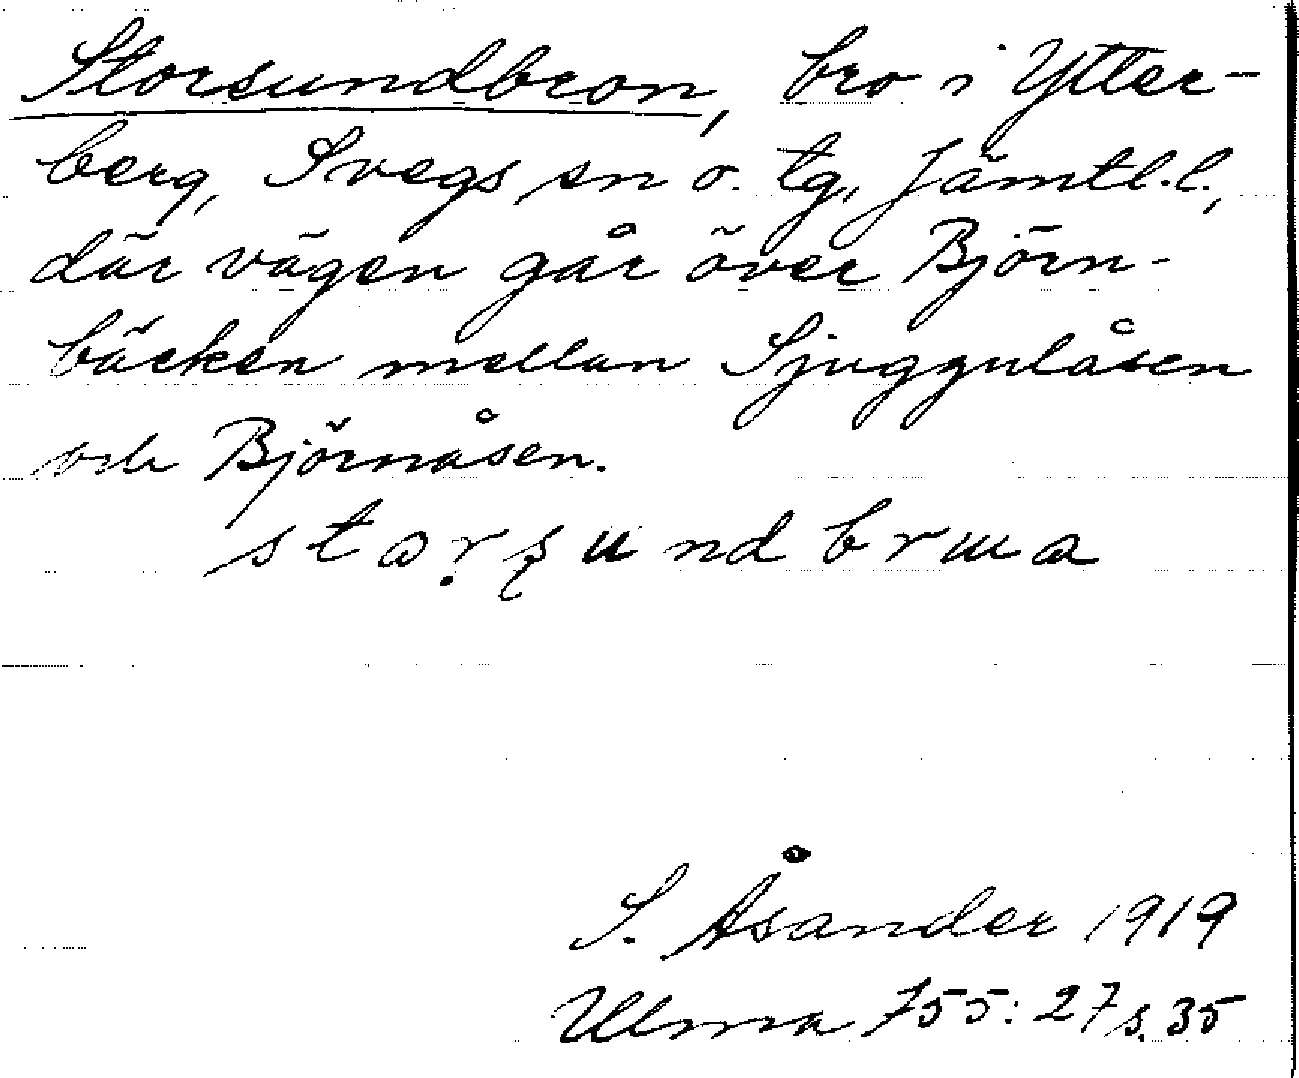 Storsundbron, bro i Ytter-
berg, Svegs sn o. tg, Jämtl.l.,
där vägen går över Björn-
bäcken mellan Sjuggulåsen
och Björnåsen.
stɑṛʂundbrɯa
S. Åsander 1919
Ulma 755:27 s. 35